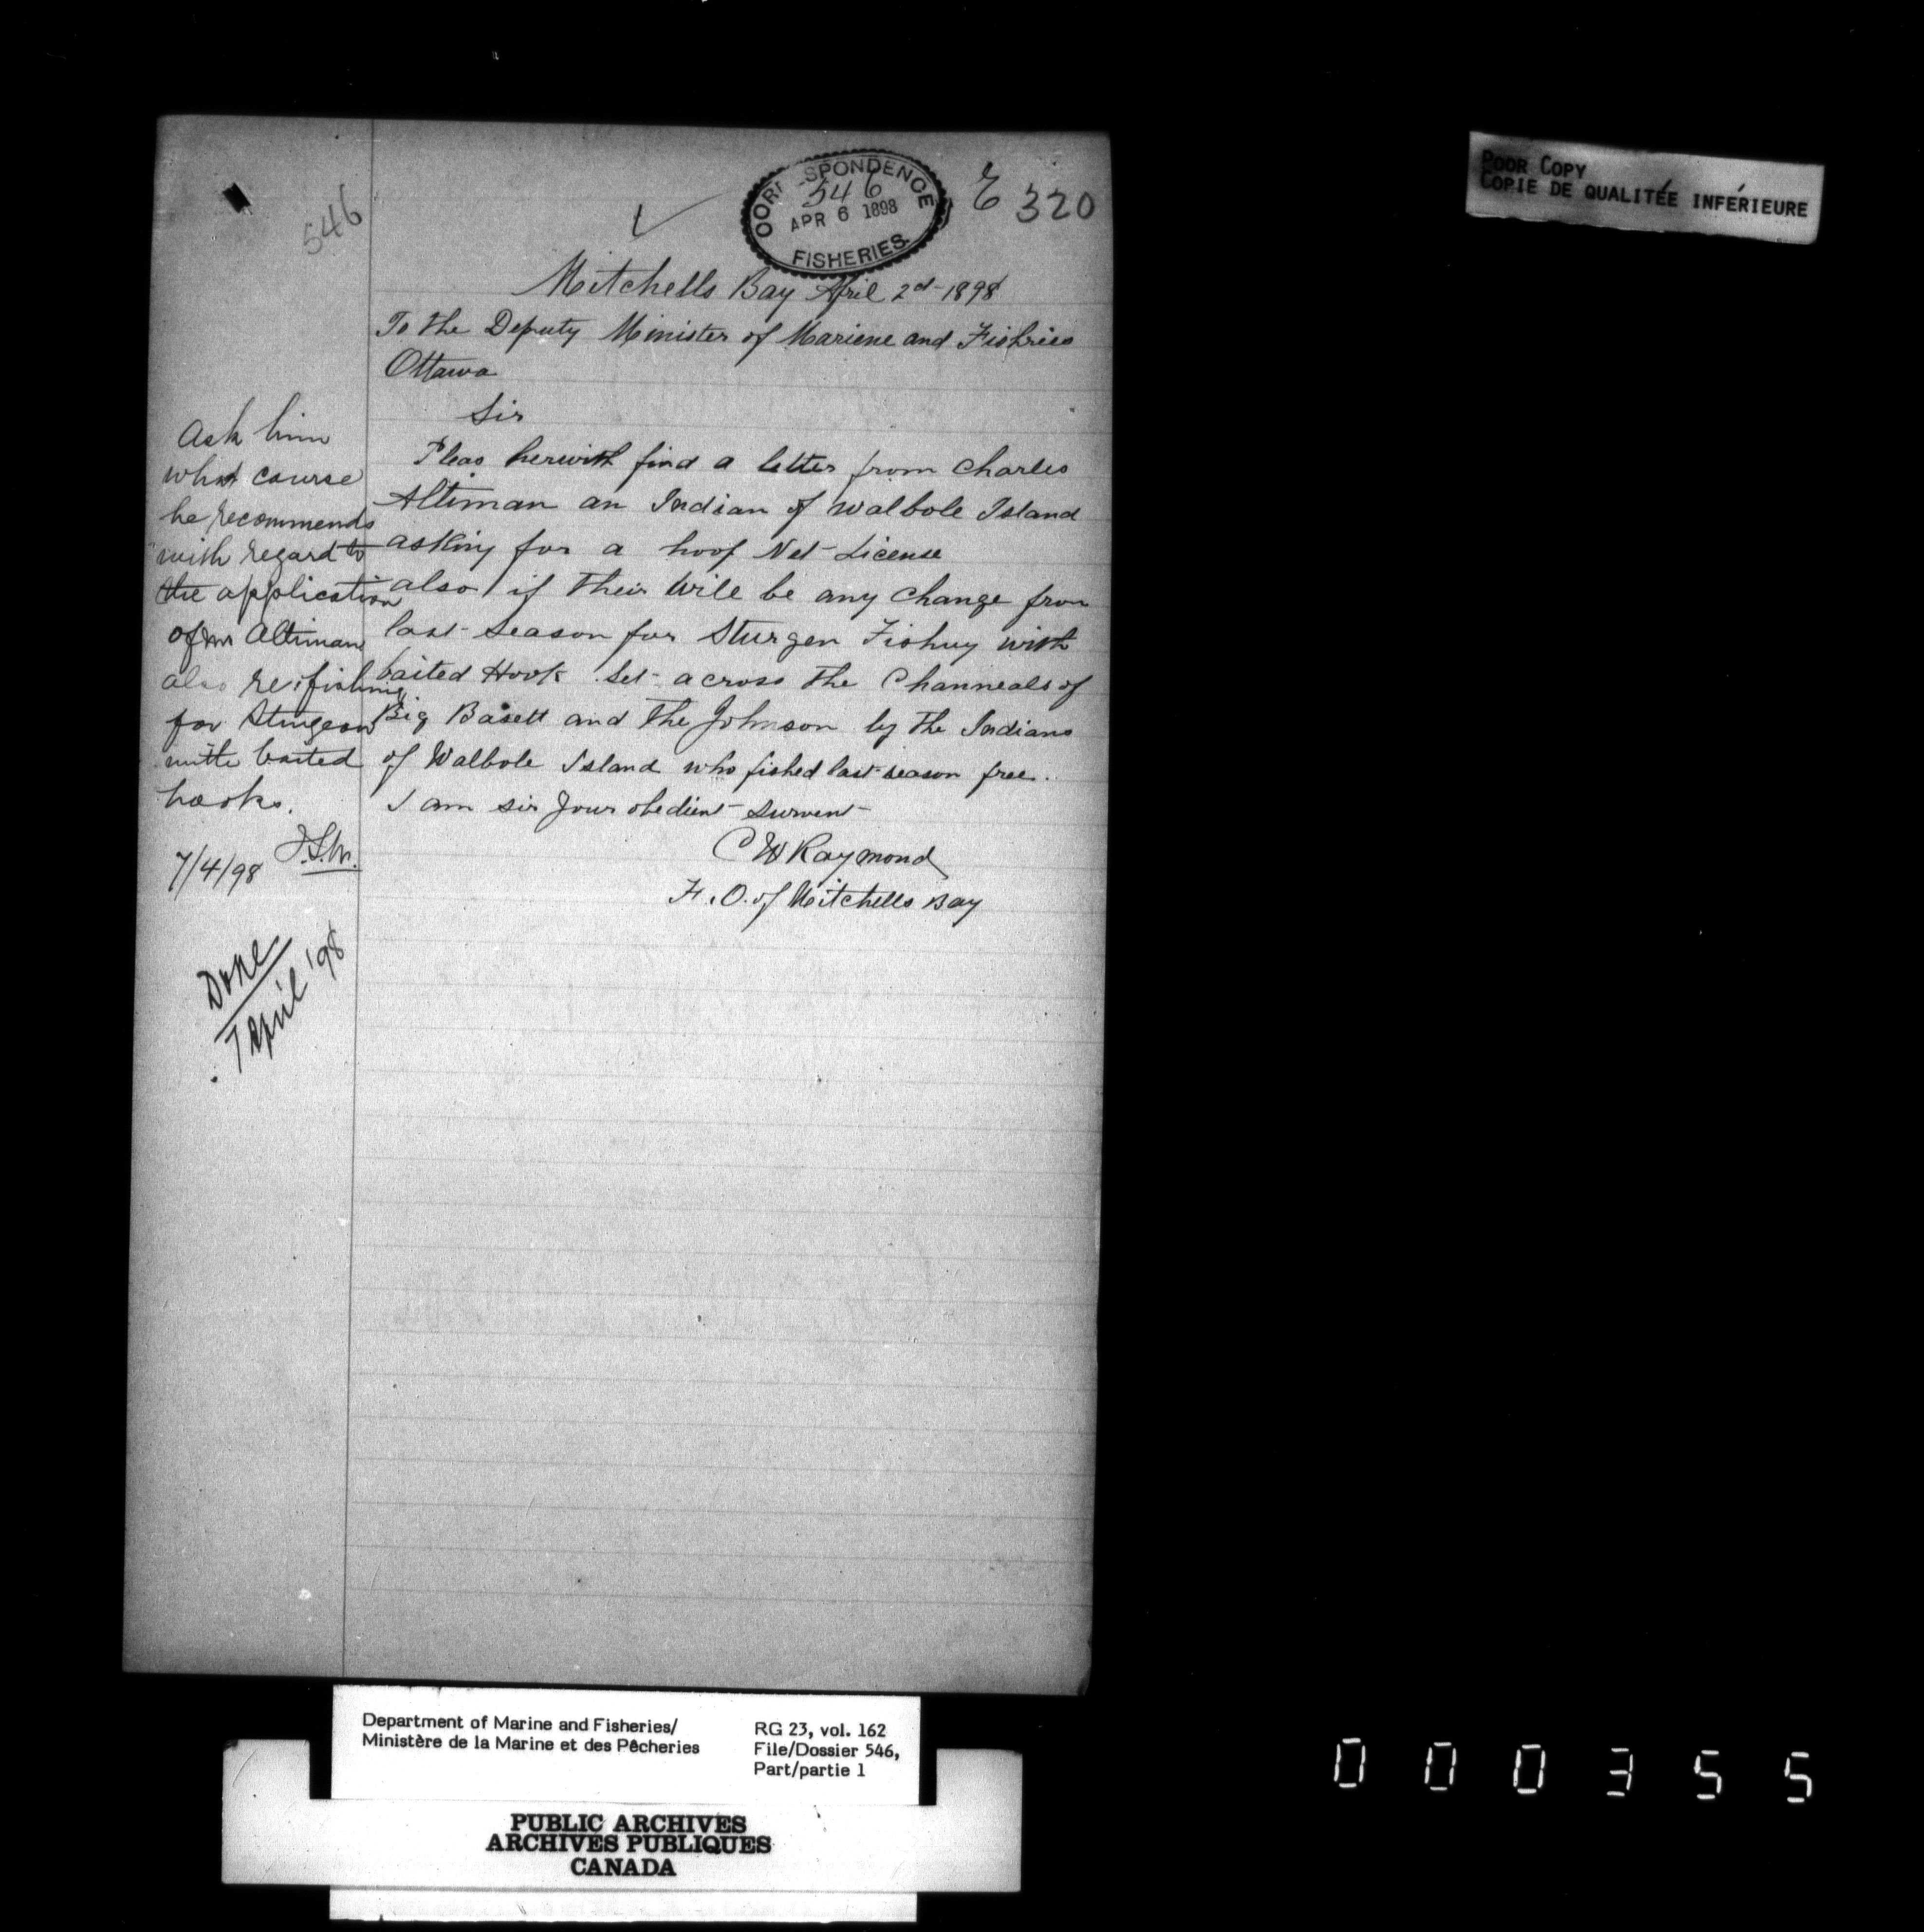 546
CORRESPONDENCE
546
APR 6 1898
FISHERIES.
E 320
POOR COPY
COPIE DE QUALITÉE INFÉRIEURE
Mitchells Bay April 2d 1898
To the Deputy Minister of Mariene and Fishries
Ottawa
Sir
Pleas herwith find a letter from Charles
Altiman an Indian of Walbole Island
asking for a hoof Net License
also if their will be any change from
last season for Sturgen Fishny with
baited Hook Set across the Channeals of
Big Basett and the Johnson by the Indians
of Walbole Island who fished last season free.
I am sir your obedient Survent
C W Raymond
F. O. of Mitchells Bay
Ask him
what course
he recommends
with regard to
the application
of Mr Altiman
also re: fishing
for Sturgeon
with baited
hooks.
7/4/98
Done
7 April '98
Department of Marine and Fisheries/
Ministère de la Marine et des Pêcheries
RG 23, vol. 162
File/Dossier 546,
Part/partie 1
PUBLIC ARCHIVES
ARCHIVES PUBLIQUES
CANADA
000355